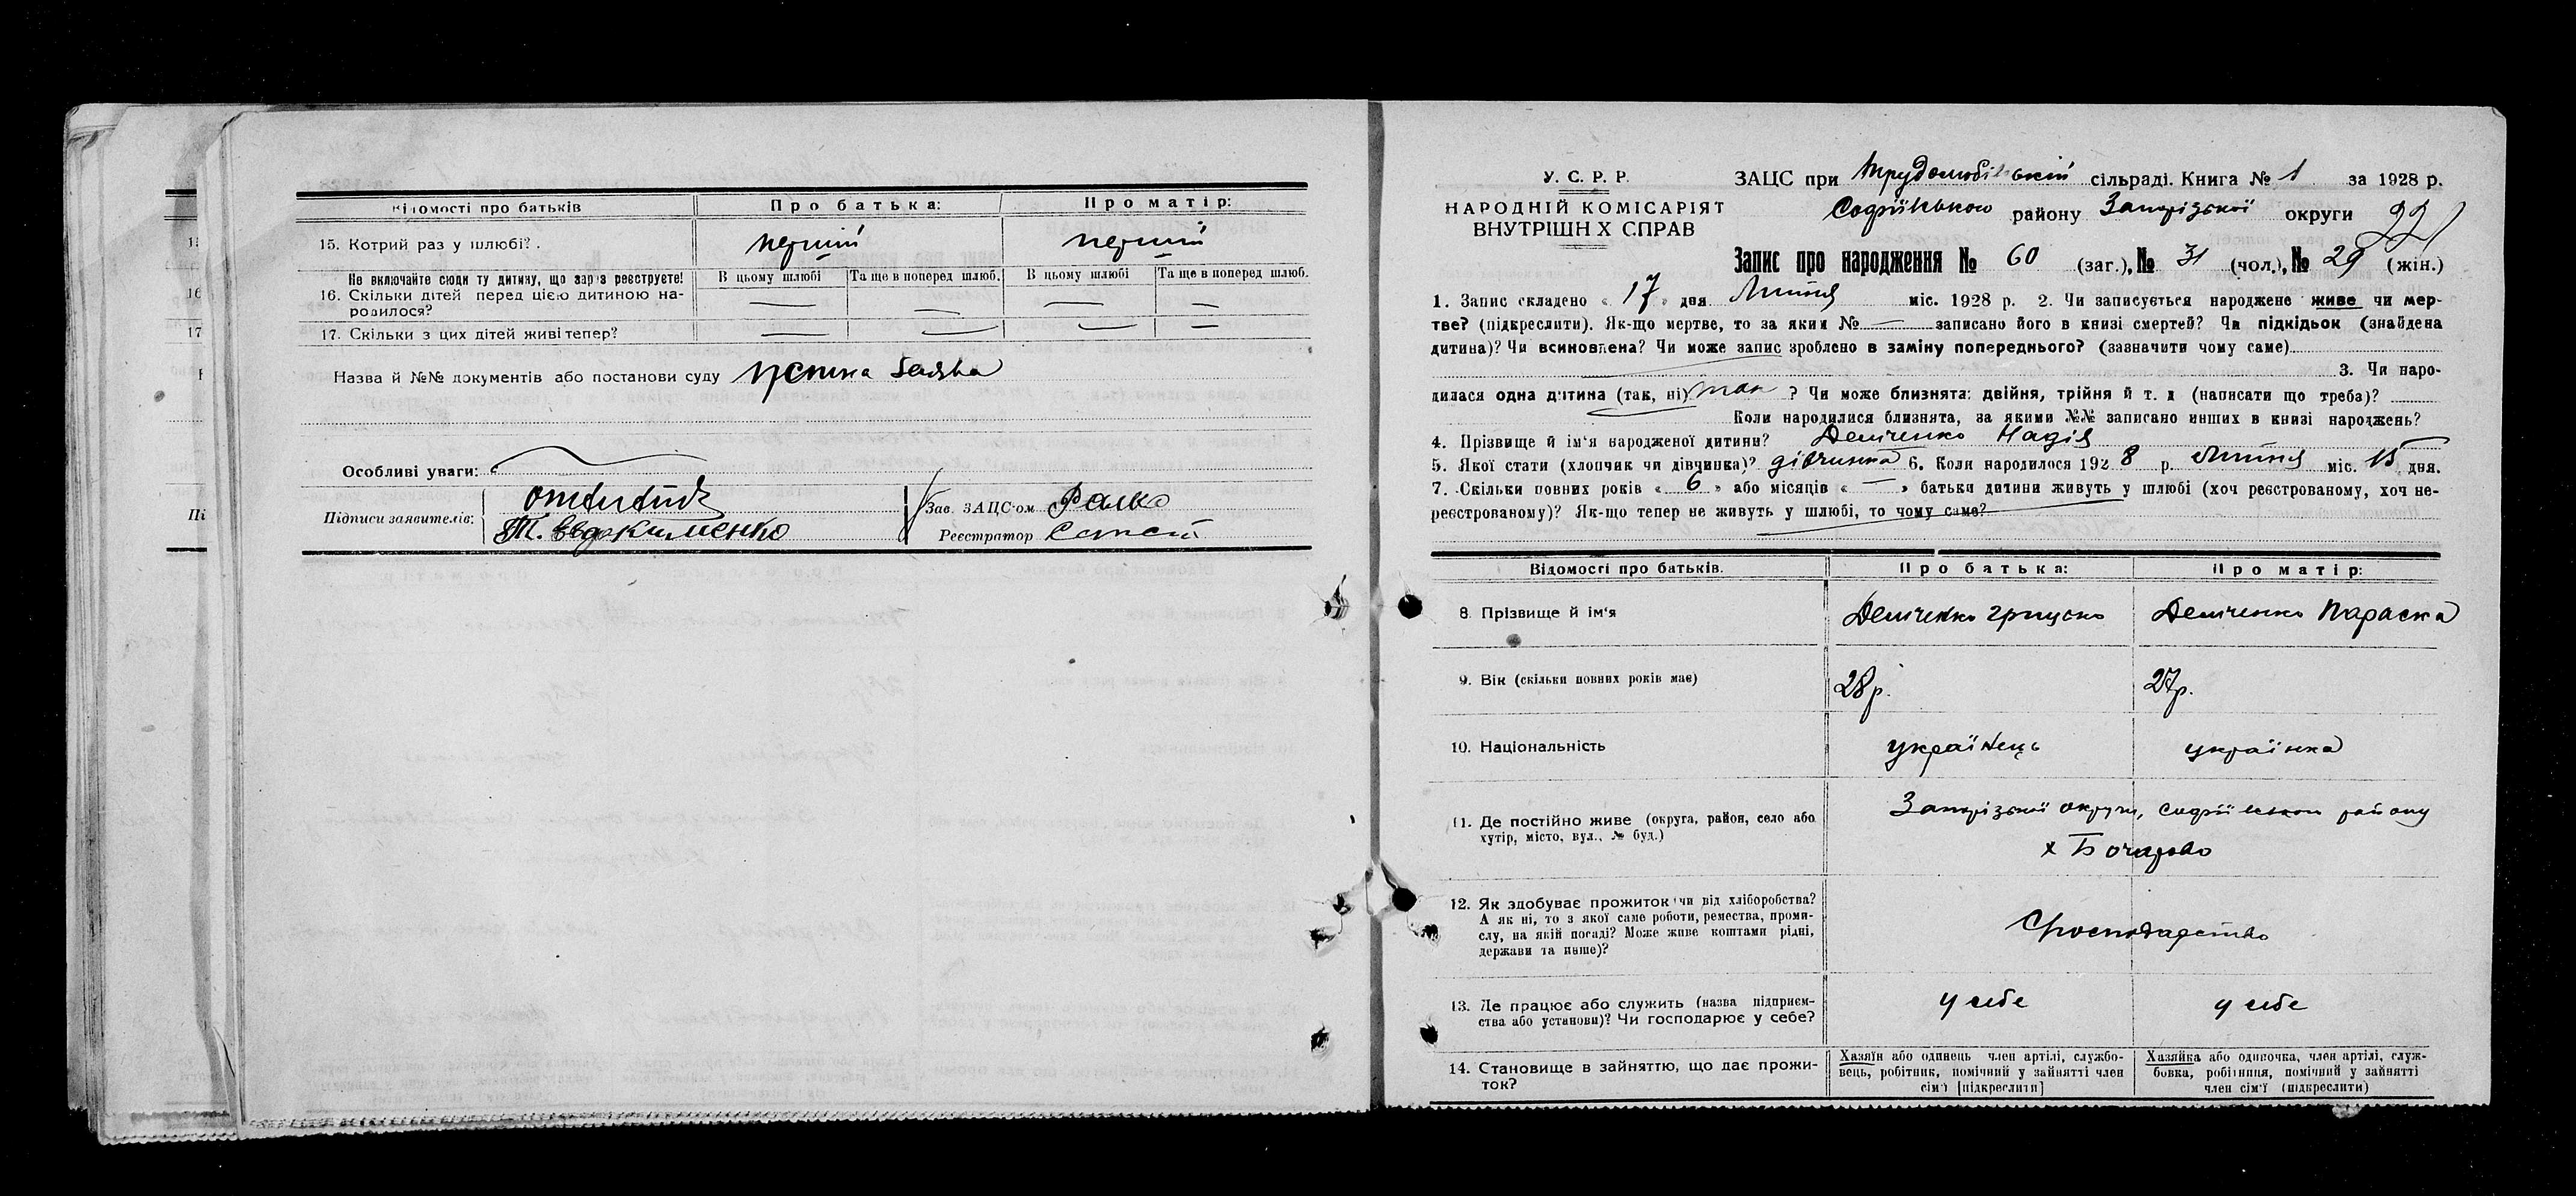 Відомості про батьків
Про батька:
Про матір:
15. Котрий раз у шлюбі?
перший
перший
Не включайте сюди ту дитину, що зараз реєструєте!
В цьому шлюбі
Та ще в поперед шлюб.
В цьому шлюбі
Та ще в поперед шлюб.
16. Скільки дітей перед цією дитиною на-
родилося?
—
—
—
—
17. Скільки з цих дітей живі тепер?
—
—
—
—
Назва й №№ документів або постанови суду заява
Особливі уваги:
Підписи заявителів:
Т. Евдокименко
Зав. ЗАЦС'ом
Реєстратор
11
16
17
Пі
У. С. Р. Р.
НАРОДНІЙ КОМІСАРІЯТ
ВНУТРІШНІХ СПРАВ
ЗАЦС при Трудолюбівській сільраді. Книга № 1 за 1928 р.
Софіївського району Запорізької округи 22
Запис про народження № 60 (заг.), № 31 (чол.), № 29 (жін.)
1. Запис складено « 17 » дня Липня міс. 1928 р. 2. Чи записується народжене живе чи мер-
тве? (підкреслити). Як-що мертве, то за яким № — записано його в книзі смертей? Чи підкідьок (знайдена
дитина)? Чи всиновлена? Чи може запис зроблено в заміну попереднього? (зазначити чому саме)
3. Чи наро-
дилася одна дитина (так, ні) так ? Чи може близнята: двійня, трійня й т. д (написати що треба)?
Коли народилися близнята, за якими №№ записано инших в книзі народжень?
4. Прізвище й ім'я народженої дитини? Демченко Надія
5. Якої стати (хлопчик чи дівчинка)? дівчинка 6. Коли народилося 1928 р. Липня міс. 15 дня.
7. Скільки повних років « 6 » або місяців « — » батьки дитини живуть у шлюбі (хоч реєстрованому, хоч не-
реєстрованому)? Як-що тепер не живуть у шлюбі, то чому саме?
Відомості про батьків.
Про батька:
Про матір:
8. Прізвище й ім'я
Демченко Грицько
Демченко Параска
9. Вік (скільки повних років має)
28 р.
27 р.
10. Національність
українець
українка
11. Де постійно живе (округа, район, село або
хутір, місто, вул., № буд.)
Запорізької округи, Софіївського району
х Бочарово
12. Як здобуває прожиток чи від хліборобства?
А як ні, то з якої саме роботи, ремества, проми-
слу, на якій посаді? Може живе коштами рідні,
держави та инше)?
Господарство
13. Де працює або служить (назва підприєм-
ства або установи)? Чи господарює у себе?
у себе
у себе
14. Становище в зайняттю, що дає прожи-
ток?
Хазяїн або одинець член артілі, службо-
вець, робітник, помічний у зайнятті член
сім'ї [підкреслити]
Хазяйка або одиночка, член артілі, служ-
бовка, робітниця, помічний у зайнятті
член сім'ї (підкреслити)